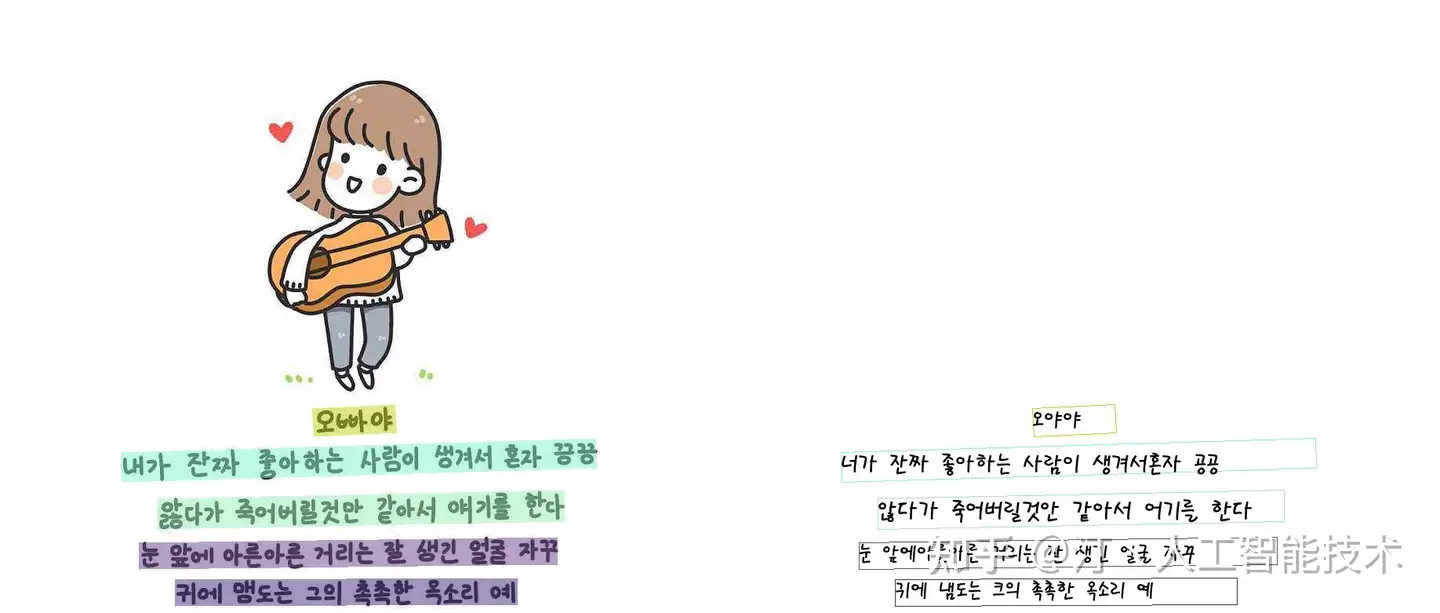 오빠야
내가 잔짜 좋아하는 사람이 생겨서 혼자 끙끙
앓다가 죽어버릴것만 같아서 얘기를 한다
눈 앞에 아른아른 거리는 잘 생긴 얼굴 자꾸
귀에 맴도는 그의 촉촉한 목소리 예
오야야
너가 잔짜 좋아하는 사람이 생겨서혼자 공공
앖다가 죽어버릴것만 같아서 어기를 한다
눈 앞에아른아른 거리는 잔 생긴 얼굴 자꾸
귀에 냄도는 크의 촉촉한 옥소리 예
知乎 @汀、人工智能技术